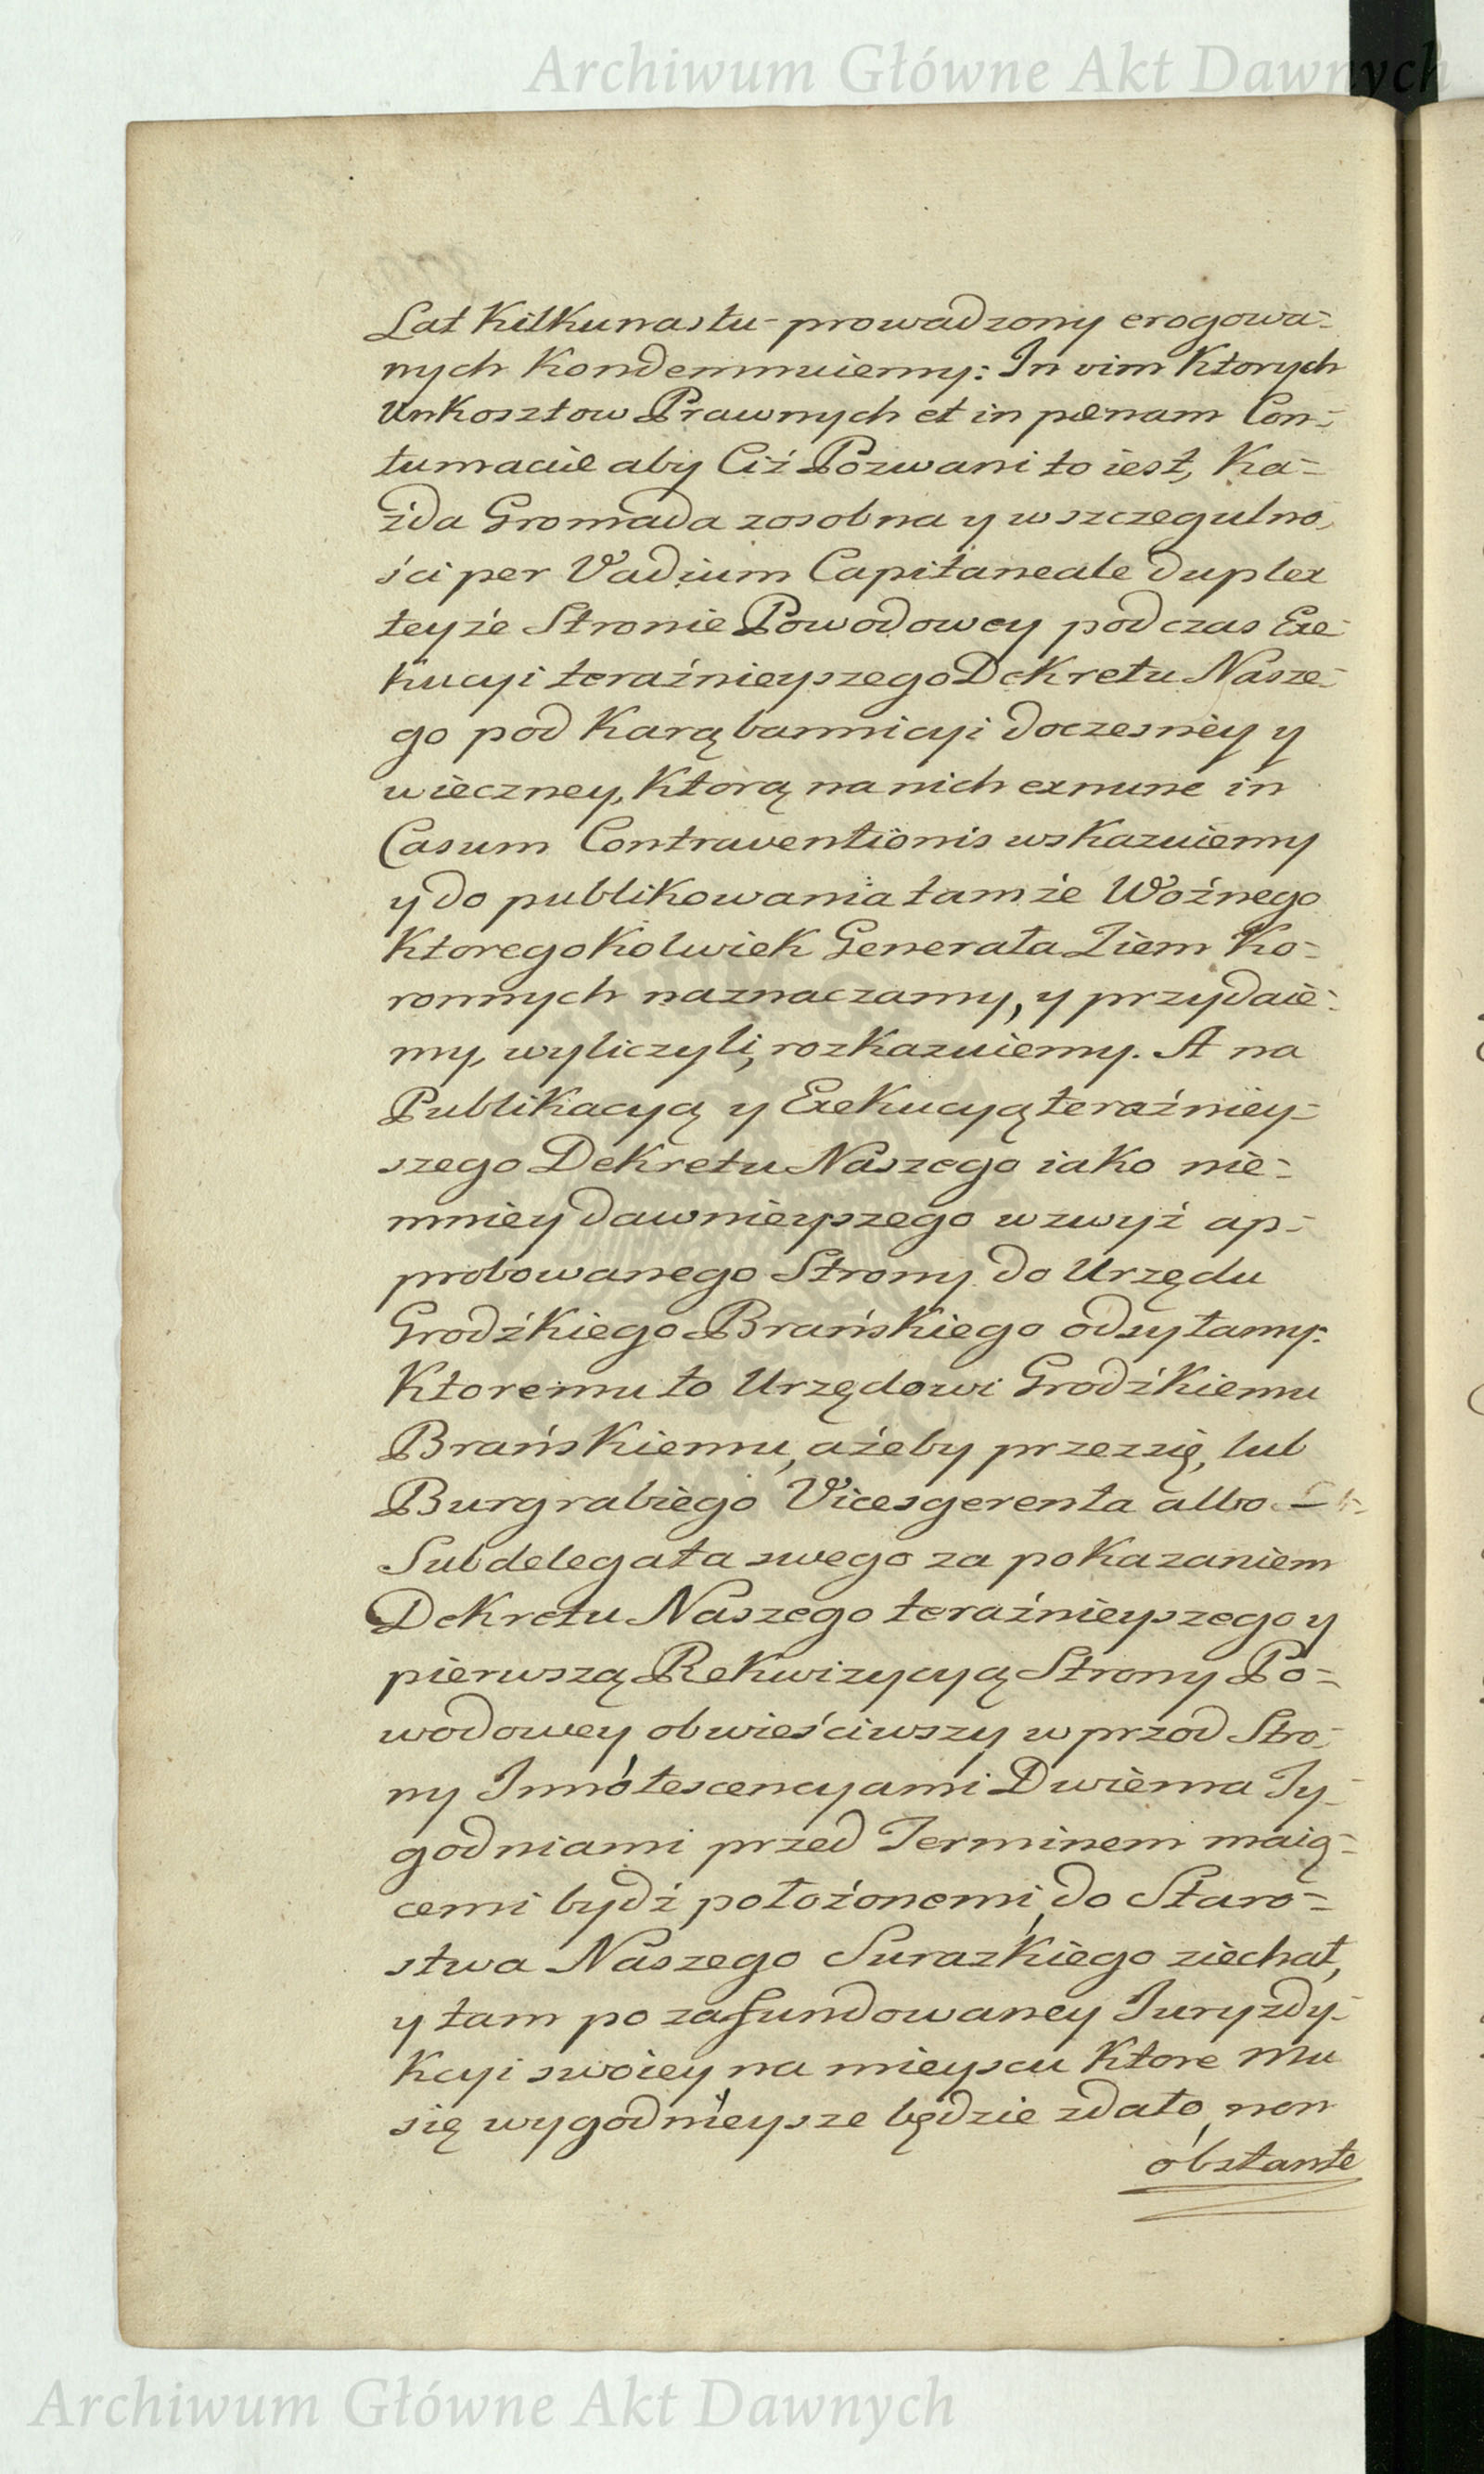 Archiwum Główne Akt Dawnych
Lat Kilkunastu prowadzony erogowa-
nych Kondemnuiemy: In vim Ktorych
Unkosztow Prawnych et in pœnam Con-
tumaciæ aby Ciż Pozwani to iest, Ka-
żda Gromada zosobna y w szczegulno-
ści per Vadium Capitaneale duplex
teyże Stronie Powodowey podczas Exe-
kucyi teraźnieyszego Dekretu Nasze-
go pod Karą bannicyi doczesney y
wieczney, Ktorą na nich exnunc in
Casum Contraventionis wskazuiemy
y do publikowania tamże Woźnego
Ktoregokolwiek Generała Ziem Ko-
ronnych naznaczamy, y przydaie-
my, wyliczyli, rozkazuiemy. A na
Publikacyą y Exekucyą teraźniey-
szego Dekretu Naszego iako nie-
mniey dawnieyszego wzwyż ap-
probowanego Strony do Urzędu
Grodźkiego Brańskiego odsyłamy:
Ktoremu to Urzędowi Grodźkiemu
Brańskiemu, ażeby przez się, lub
Burgrabiego Vicesgerenta albo
Subdelegata swego za pokazaniem
Dekretu Naszego teraźnieyszego y
pierwszą Rekwizycyą Strony Po-
wodowey obwieściwszy wprzod Stro-
ny Innotescencyami Dwiema Ty-
godniami przed Terminem maią-
cemi bydź położonemi, do Staro-
stwa Naszego Surazkiego ziechał,
y tam po zafundowaney Juryzdy-
Kcyi swoiey na mieyscu Ktore mu
się wygodnieysze będzie zdało, non
obstante
Archiwum Główne Akt Dawnych